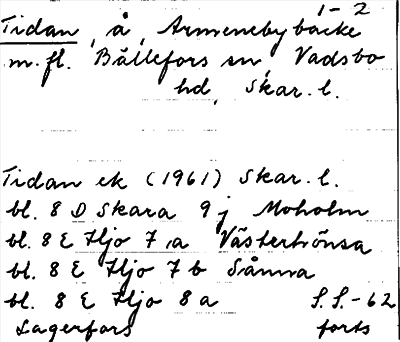 1-2
Tidan, å, Armenebybäcke
m.fl. Bällefors sn, Vadsbo
hd, Skar. l.
Tidan ek (1961) Skar. l.
bl. 8 D Skara 9 j Moholm
bl. 8 E Hjo 7 a Västerhönsa
bl. 8 E Hjo 7 b Sånna
bl. 8 E Hjo 8 a S.S.-62
Lagerfors forts